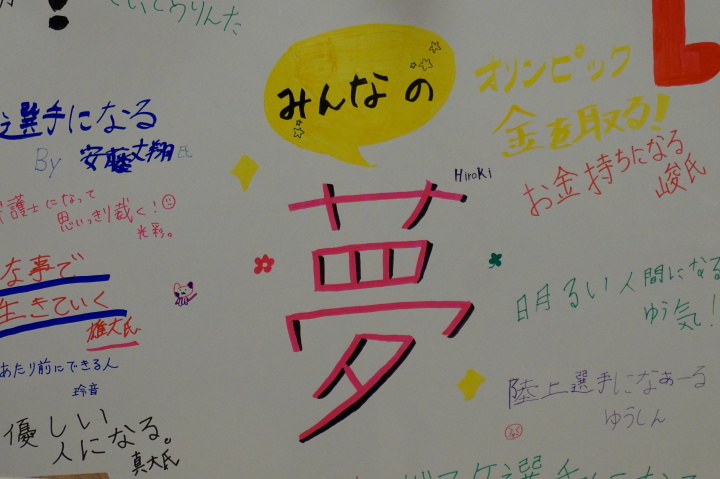 みんなの
夢
Hiroki
オリンピック
金を取る!
お金持ちになる
峻氏
明るい人間になる
ゆう気!
陸上選手になぁーる
ゆうしん
選手になる
By 安藤丈翔氏
護士になって
思いっきり裁く!
光彩。
な事で
生きていく
雄大氏
あたり前にできる人
玲音
優しい
人になる。
真大氏